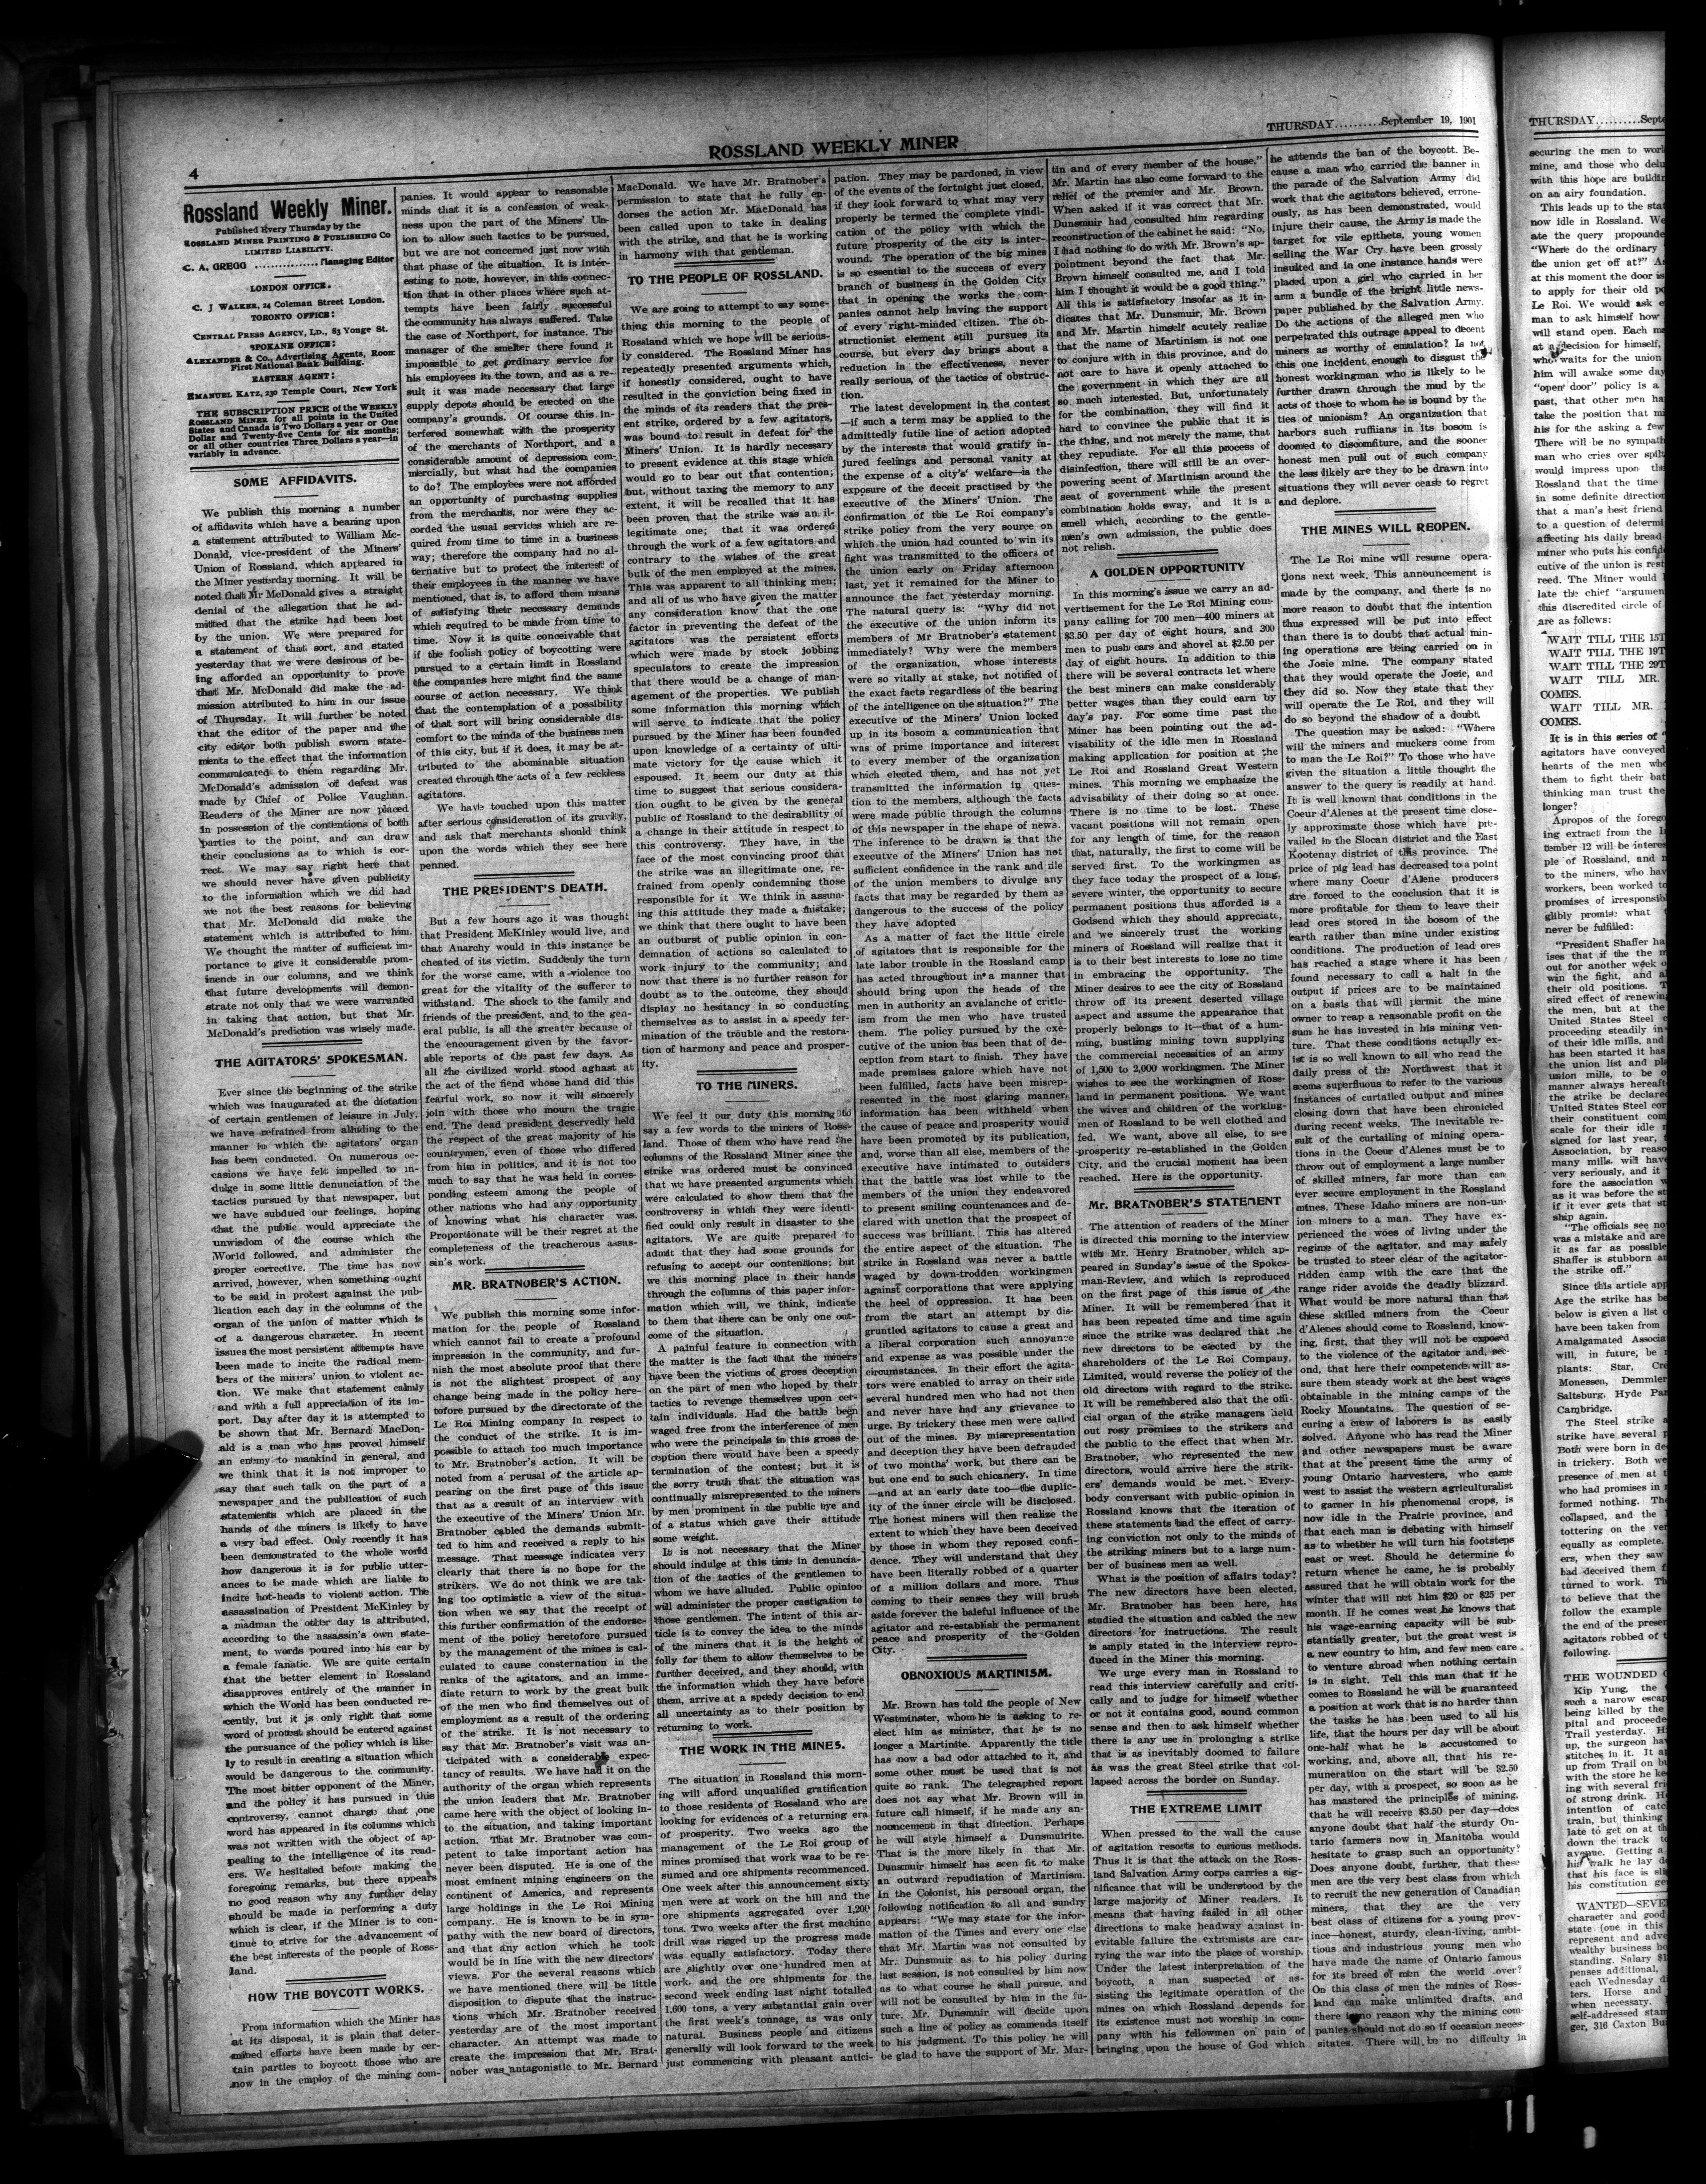 4
ROSSLAND WEEKLY MINER
THURSDAY..........September 19, 1901
Rossland Weekly Miner.
Published Every Thursday by the
ROSSLAND MINER PRINTING & PUBLISHING CO
LIMITED LIABILITY.
C. A. GREGG ...............Managing Editor
LONDON OFFICE.
C. J WALKER, 24 Coleman Street London.
TORONTO OFFICE:
CENTRAL PRESS AGENCY, LD., 83 Yonge St.
SPOKANE OFFICE:
ALEXANDER & Co., Advertising Agents, Room
First National Bank Building.
EASTERN AGENT:
EMANUEL KATZ, 230 Temple Court, New York
THE SUBSCRIPTION PRICE of the WEEKLY
ROSSLAND MINER for all points in the United
States and Canada is Two Dollars a year or One
Dollar and Twenty-five Cents for six months;
or all other countries Three Dollars a year—in
variably in advance.
SOME AFFIDAVITS.
We publish this morning a number
of affidavits which have a bearing upon
a statement attributed to William Mc-
Donald, vice-president of the Miners'
Union of Rossland, which appeared in
the Miner yesterday morning. It will be
noted that Mr McDonald gives a straight
denial of the allegation that he ad-
mitted that the strike had been lost
by the union. We were prepared for
a statement of that sort, and stated
yesterday that we were desirous of be-
ing afforded an opportunity to prove
that Mr. McDonald did make the ad-
mission attributed to him in our issue
of Thursday. It will further be noted
that the editor of the paper and the
city editor both publish sworn state-
ments to the effect that the information
communicated to them regarding Mr.
McDonald's admission of defeat was
made by Chief of Police Vaughan.
Readers of the Miner are now placed
in possession of the contentions of both
parties to the point, and can draw
their conclusions as to which is cor-
rect. We may say right here that
we should never have given publicity
to the information which we did had
we not the best reasons for believing
that Mr. McDonald did make the
statement which is attributed to him.
We thought the matter of sufficient im-
portance to give it considerable prom-
inence in our columns, and we think
that future developments will demon-
strate not only that we were warranted
in taking that action, but that Mr.
McDonald's prediction was wisely made.
THE AGITATORS' SPOKESMAN.
Ever since the beginning of the strike
which was inaugurated at the dictation
of certain gentlemen of leisure in July,
we have refrained from alluding to the
manner in which the agitators' organ
has been conducted. On numerous oc-
casions we have felt impelled to in-
dulge in some little denunciation of the
tactics pursued by that newspaper, but
we have subdued our feelings, hoping
that the public would appreciate the
unwisdom of the course which the
World followed, and administer the
proper corrective. The time has now
arrived, however, when something ought
to be said in protest against the pub-
lication each day in the columns of the
organ of the union of matter which is
of a dangerous character. In recent
issues the most persistent attempts have
been made to incite the radical mem-
bers of the miners' union to violent ac-
tion. We make that statement calmly
and with a full appreciation of its im-
port. Day after day it is attempted to
be shown that Mr. Bernard MacDon-
ald is a man who has proved himself
an enemy to mankind in general, and
we think that it is not improper to
say that such talk on the part of a
newspaper and the publication of such
statements which are placed in the
hands of the miners is likely to have
a very bad effect. Only recently it has
been demonstrated to the whole world
how dangerous it is for public utter-
ances to be made which are liable to
incite hot-heads to violent action. The
assassination of President McKinley by
a madman the other day is attributed,
according to the assassin's own state-
ment, to words poured into his ear by
a female fanatic. We are quite certain
that the better element in Rossland
disapproves entirely of the manner in
which the World has been conducted re-
cently, but it is only right that some
word of protest should be entered against
the pursuance of the policy which is like-
ly to result in creating a situation which
would be dangerous to the community.
The most bitter opponent of the Miner,
and the policy it has pursued in this
controversy, cannot charge that one
word has appeared in its columns which
was not written with the object of ap-
pealing to the intelligence of its read-
ers. We hesitated before making the
foregoing remarks, but there appears
no good reason why any further delay
should be made in performing a duty
which is clear, if the Miner is to con-
tinue to strive for the advancement of
the best interests of the people of Ross-
land.
HOW THE BOYCOTT WORKS.
From information which the Miner has
at its disposal, it is plain that deter-
mined efforts have been made by cer-
tain parties to boycott those who are
now in the employ of the mining com-
panies. It would appear to reasonable
minds that it is a confession of weak-
ness upon the part of the Miners' Un-
ion to allow such tactics to be pursued,
but we are not concerned just now with
that phase of the situation. It is inter-
esting to note, however, in this connec-
tion that in other places where such at-
tempts have been fairly successful
the community has always suffered. Take
the case of Northport, for instance. The
manager of the smelter there found it
impossible to get ordinary service for
his employees in the town, and as a re-
sult it was made necessary that large
supply depots should be erected on the
company's grounds. Of course this in-
terfered somewhat with the prosperity
of the merchants of Northport, and a
considerable amount of depression com-
mercially, but what had the companies
to do? The employees were not afforded
an opportunity of purchasing supplies
from the merchants, nor were they ac-
corded the usual services which are re-
quired from time to time in a business
way; therefore the company had no al-
ternative but to protect the interest of
their employees in the manner we have
mentioned, that is, to afford them means
of satisfying their necessary demands
which required to be made from time to
time. Now it is quite conceivable that
if the foolish policy of boycotting were
pursued to a certain limit in Rossland
the companies here might find the same
course of action necessary. We think
that the contemplation of a possibility
of that sort will bring considerable dis-
comfort to the minds of the business men
of this city, but if it does, it may be at-
tributed to the abominable situation
created through the acts of a few reckless
agitators.
We have touched upon this matter
after serious consideration of its gravity,
and ask that merchants should think
upon the words which they see here
penned.
THE PRESIDENT'S DEATH.
But a few hours ago it was thought
that President McKinley would live, and
that Anarchy would in this instance be
cheated of its victim. Suddenly the turn
for the worse came, with a violence too
great for the vitality of the sufferer to
withstand. The shock to the family and
friends of the president, and to the gen-
eral public, is all the greater because of
the encouragement given by the favor-
able reports of the past few days. As
all the civilized world stood aghast at
the act of the fiend whose hand did this
fearful work, so now it will sincerely
join with those who mourn the tragic
end. The dead president deservedly held
the respect of the great majority of his
countrymen, even of those who differed
from him in politics, and it is not too
much to say that he was held in corres-
ponding esteem among the people of
other nations who had any opportunity
of knowing what his character was.
Proportionate will be their regret at the
completeness of the treacherous assas-
sin's work.
MR. BRATNOBER'S ACTION.
We publish this morning some infor-
mation for the people of Rossland
which cannot fail to create a profound
impression in the community, and fur-
nish the most absolute proof that there
is not the slightest prospect of any
change being made in the policy here-
tofore pursued by the directorate of the
Le Roi Mining company in respect to
the conduct of the strike. It is im-
possible to attach too much importance
to Mr. Bratnober's action. It will be
noted from a perusal of the article ap-
pearing on the first page of this issue
that as a result of an interview with
the executive of the Miners' Union Mr.
Bratnober cabled the demands submit-
ted to him and received a reply to his
message. That message indicates very
clearly that there is no hope for the
strikers. We do not think we are tak-
ing too optimistic a view of the situa-
tion when we say that the receipt of
this further confirmation of the endorse-
ment of the policy heretofore pursued
by the management of the mines is cal-
culated to cause consternation in the
ranks of the agitators, and an imme-
diate return to work by the great bulk
of the men who find themselves out of
employment as a result of the ordering
of the strike. It is not necessary to
say that Mr. Bratnober's visit was an-
ticipated with a considerable expec-
tancy of results. We have had it on the
authority of the organ which represents
the union leaders that Mr. Bratnober
came here with the object of looking in-
to the situation, and taking important
action. That Mr. Bratnober was com-
petent to take important action has
never been disputed. He is one of the
most eminent mining engineers on the
continent of America, and represents
large holdings in the Le Roi Mining
company. He is known to be in sym-
pathy with the new board of directors,
and that any action which he took
would be in line with the new directors'
views. For the several reasons which
we have mentioned there will be little
disposition to dispute that the instruc-
tions which Mr. Bratnober received
yesterday are of the most important
character. An attempt was made to
create the impression that Mr. Brat-
nober was antagonistic to Mr. Bernard
MacDonald. We have Mr. Bratnober's
permission to state that he fully en-
dorses the action Mr. MacDonald has
been called upon to take in dealing
with the strike, and that he is working
in harmony with that gentleman.
TO THE PEOPLE OF ROSSLAND.
We are going to attempt to say some-
thing this morning to the people of
Rossland which we hope will be serious-
ly considered. The Rossland Miner has
repeatedly presented arguments which,
if honestly considered, ought to have
resulted in the conviction being fixed in
the minds of its readers that the pres-
ent strike, ordered by a few agitators,
was bound to result in defeat for the
Miners' Union. It is hardly necessary
to present evidence at this stage which
would go to bear out that contention;
but, without taxing the memory to any
extent, it will be recalled that it has
been proven that the strike was an il-
legitimate one; that it was ordered
through the work of a few agitators and
contrary to the wishes of the great
bulk of the men employed at the mines.
This was apparent to all thinking men;
and all of us who have given the matter
any consideration know that the one
factor in preventing the defeat of the
agitators was the persistent efforts
which were made by stock jobbing
speculators to create the impression
that there would be a change of man-
agement of the properties. We publish
some information this morning which
will serve to indicate that the policy
pursued by the Miner has been founded
upon knowledge of a certainty of ulti-
mate victory for the cause which it
espoused. It seem our duty at this
time to suggest that serious considera-
tion ought to be given by the general
public of Rossland to the desirability of
a change in their attitude in respect to
this controversy. They have, in the
face of the most convincing proof that
the strike was an illegitimate one, re-
frained from openly condemning those
responsible for it We think in assum-
ing this attitude they made a mistake;
we think that there ought to have been
an outburst of public opinion in con-
demnation of actions so calculated to
work injury to the community; and
now that there is no further reason for
doubt as to the outcome, they should
display no hesitancy in so conducting
themselves as to assist in a speedy ter-
mination of the trouble and the restora-
tion of harmony and peace and prosper-
ity.
TO THE MINERS.
We feel it our duty this morning to
say a few words to the miners of Ross-
land. Those of them who have read the
columns of the Rossland Miner since the
strike was ordered must be convinced
that we have presented arguments which
were calculated to show them that the
controversy in which they were identi-
fied could only result in disaster to the
agitators. We are quite prepared to
admit that they had some grounds for
refusing to accept our contentions; but
we this morning place in their hands
through the columns of this paper infor-
mation which will, we think, indicate
to them that there can be only one out-
come of the situation.
A painful feature in connection with
the matter is the fact that the miners
have been the victims of gross deception
on the part of men who hoped by their
tactics to revenge themselves upon cer-
tain individuals. Had the battle been
waged free from the interference of men
who were the principals in this gross de-
ception there would have been a speedy
termination of the contest; but it is
the sorry truth that the situation was
continually misrepresented to the miners
by men prominent in the public eye and
of a status which gave their attitude
some weight.
It is not necessary that the Miner
should indulge at this time in denuncia-
tion of the tactics of the gentlemen to
whom we have alluded. Public opinion
will administer the proper castigation to
those gentlemen. The intent of this ar-
ticle is to convey the idea to the minds
of the miners that it is the height of
folly for them to allow themselves to be
further deceived, and they should, with
the information which they have before
them, arrive at a speedy decision to end
all uncertainty as to their position by
returning to work.
THE WORK IN THE MINES.
The situation in Rossland this morn-
ing will afford unqualified gratification
to those residents of Rossland who are
looking for evidences of a returning era
of prosperity. Two weeks ago the
management of the Le Roi group of
mines promised that work was to be re-
sumed and ore shipments recommenced.
One week after this announcement sixty
men were at work on the hill and the
ore shipments aggregated over 1,200
tons. Two weeks after the first machine
drill was rigged up the progress made
was equally satisfactory. Today there
are slightly over one hundred men at
work and the ore shipments for the
second week ending last night totalled
1,600 tons, a very substantial gain over
the first week's tonnage, as was only
natural. Business people and citizens
generally will look forward to the week
just commencing with pleasant antici-
pation. They may be pardoned, in view
of the events of the fortnight just closed,
if they look forward to what may very
properly be termed the complete vindi-
cation of the policy with which the
future prosperity of the city is inter-
wound. The operation of the big mines
is so essential to the success of every
branch of business in the Golden City
that in opening the works the com-
panies cannot help having the support
of every right-minded citizen. The ob-
structionist element still pursues its
course, but every day brings about a
reduction in the effectiveness, never
really serious, of the tactics of obstruc-
tion.
The latest development in the contest
—if such a term may be applied to the
admittedly futile line of action adopted
by the interests that would gratify in-
jured feelings and personal vanity at
the expense of a city's welfare—is the
exposure of the deceit practised by the
executive of the Miners' Union. The
confirmation of the Le Roi company's
strike policy from the very source on
which the union had counted to win its
fight was transmitted to the officers of
the union early on Friday afternoon
last, yet it remained for the Miner to
announce the fact yesterday morning.
The natural query is: "Why did not
the executive of the union inform its
members of Mr Bratnober's statement
immediately? Why were the members
of the organization, whose interests
were so vitally at stake, not notified of
the exact facts regardless of the bearing
of the intelligence on the situation?" The
executive of the Miners' Union locked
up in its bosom a communication that
was of prime importance and interest
to every member of the organization
which elected them, and has not yet
transmitted the information in ques-
tion to the members, although the facts
were made public through the columns
of this newspaper in the shape of news.
The inference to be drawn is that the
executve of the Miners' Union has not
sufficient confidence in the rank and file
of the union members to divulge any
facts that may be regarded by them as
dangerous to the success of the policy
they have adopted
As a matter of fact the little circle
of agitators that is responsible for the
late labor trouble in the Rossland camp
has acted throughout in a manner that
should bring upon the heads of the
men in authority an avalanche of critic-
ism from the men who have trusted
them. The policy pursued by the exe-
cutive of the union has been that of de-
ception from start to finish. They have
made promises galore which have not
been fulfilled, facts have been misrep-
resented in the most glaring manner,
information has been withheld when
the cause of peace and prosperity would
have been promoted by its publication,
and, worse than all else, members of the
executive have intimated to outsiders
that the battle was lost while to the
members of the union they endeavored
to present smiling countenances and de-
clared with unction that the prospect of
success was brilliant. This has altered
the entire aspect of the situation. The
strike in Rossland was never a battle
waged by down-trodden workingmen
against corporations that were applying
the heel of oppression. It has been
from the start an attempt by dis-
gruntled agitators to cause a great and
a liberal corporation such annoyance
and expense as was possible under the
circumstances. In their effort the agita-
tors were enabled to array on their side
several hundred men who had not then
and never have had any grievance to
urge. By trickery these men were called
out of the mines. By misrepresentation
and deception they have been defrauded
of two months' work, but there can be
but one end to such chicanery. In time
—and at an early date too—the duplic-
ity of the inner circle will be disclosed.
The honest miners will then realize the
extent to which they have been deceived
by those in whom they reposed confi-
dence. They will understand that they
have been literally robbed of a quarter
of a million dollars and more. Thus
coming to their senses they will brush
aside forever the baleful influence of the
agitator and re-establish the permanent
peace and prosperity of the Golden
City.
OBNOXIOUS MARTINISM.
Mr. Brown has told the people of New
Westminster, whom he is asking to re-
elect him as minister, that he is no
longer a Martinite. Apparently the title
has now a bad odor attached to it, and
some other must be used that is not
quite so rank. The telegraphed report
does not say what Mr. Brown will in
future call himself, if he made any an-
nouncement in that direction. Perhaps
he will style himself a Dunsmuirite.
That is the more likely in that Mr.
Dunsmuir himself has seen fit to make
an outward repudiation of Martinism.
In the Colonist, his personal organ, the
following notification to all and sundry
appears: "We may state for the infor-
mation of the Times and every one else
that Mr. Martin was not consulted by
Mr. Dunsmuir as to his policy during
last session, is not consulted by him now
as to what course he shall pursue, and
will not be consulted by him in the fu-
ture. Mr. Dunsmuir will decide upon
such a line of policy as commends itself
to his judgment. To this policy he will
be glad to have the support of Mr. Mar-
tin and of every member of the house."
Mr. Martin has also come forward to the
relief of the premier and Mr. Brown.
When asked if it was correct that Mr.
Dunsmuir had consulted him regarding
reconstruction of the cabinet he said: "No,
I had nothing to do with Mr. Brown's ap-
pointment beyond the fact that Mr.
Brown himself consulted me, and I told
him I thought it would be a good thing."
All this is satisfactory insofar as it in-
dicates that Mr. Dunsmuir, Mr. Brown
and Mr. Martin himself acutely realize
that the name of Martinism is not one
to conjure with in this province, and do
not care to have it openly attached to
the government in which they are all
so much interested. But, unfortunately
for the combination, they will find it
hard to convince the public that it is
the thing, and not merely the name, that
they repudiate. For all this process of
disinfection, there will still be an over-
powering scent of Martinism around the
seat of government while the present
combination holds sway, and it is a
smell which, according to the gentle-
men's own admission, the public does
not relish.
A GOLDEN OPPORTUNITY
In this morning's issue we carry an ad-
vertisement for the Le Roi Mining com-
pany calling for 700 men—400 miners at
$3.50 per day of eight hours, and 300
men to push cars and shovel at $2.50 per
day of eight hours. In addition to this
there will be several contracts let where
the best miners can make considerably
better wages than they could earn by
day's pay. For some time past the
Miner has been pointing out the ad-
visability of the idle men in Rossland
making application for position at the
Le Roi and Rossland Great Western
mines. This morning we emphasize the
advisability of their doing so at once.
There is no time to be lost. These
vacant positions will not remain open
for any length of time, for the reason
that, naturally, the first to come will be
served first. To the workingmen as
they face today the prospect of a long,
severe winter, the opportunity to secure
permanent positions thus afforded is a
Godsend which they should appreciate,
and we sincerely trust the working
miners of Rossland will realize that it
is to their best interests to lose no time
in embracing the opportunity. The
Miner desires to see the city of Rossland
throw off its present deserted village
aspect and assume the appearance that
properly belongs to it—that of a hum-
ming, bustling mining town supplying
the commercial necessities of an army
of 1,500 to 2,000 workingmen. The Miner
wishes to see the workingmen of Ross-
land in permanent positions. We want
the wives and children of the working-
men of Rossland to be well clothed and
fed. We want, above all else, to see
prosperity re-established in the Golden
City, and the crucial moment has been
reached. Here is the opportunity.
Mr. BRATNOBER'S STATEMENT
The attention of readers of the Miner
is directed this morning to the interview
with Mr. Henry Bratnober, which ap-
peared in Sunday's issue of the Spokes-
man-Review, and which is reproduced
on the first page of this issue of the
Miner. It will be remembered that it
has been repeated time and time again
since the strike was declared that the
new directors to be elected by the
shareholders of the Le Roi Company,
Limited, would reverse the policy of the
old directors with regard to the strike.
It will be remembered also that the offi-
cial organ of the strike managers held
out rosy promises to the strikers and
the public to the effect that when Mr.
Bratnober, who represented the new
directors, would arrive here the strik-
ers' demands would be met. Every-
body conversant with public opinion in
Rossland knows that the iteration of
these statements had the effect of carry-
ing conviction not only to the minds of
the striking miners but to a large num-
ber of business men as well.
What is the position of affairs today?
The new directors have been elected,
Mr. Bratnober has been here, has
studied the situation and cabled the new
directors for instructions. The result
is amply stated in the interview repro-
duced in the Miner this morning.
We urge every man in Rossland to
read this interview carefully and criti-
cally and to judge for himself whether
or not it contains good, sound common
sense and then to ask himself whether
there is any use in prolonging a strike
that is as inevitably doomed to failure
as was the great Steel strike that col-
lapsed across the border on Sunday.
THE EXTREME LIMIT
When pressed to the wall the cause
of agitation resorts to curious methods.
Thus it is that the attack on the Ross-
land Salvation Army corps carries a sig-
nificance that will be understood by the
large majority of Miner readers. It
means that having failed in all other
directions to make headway against in-
evitable failure the extremists are car-
rying the war into the place of worship.
Under the latest interpretation of the
boycott, a man suspected of as-
sisting the legitimate operation of the
mines on which Rossland depends for
its existence must not worship in com-
pany with his fellowmen on pain of
bringing upon the house of God which
he attends the ban of the boycott. Be-
cause a man who carried the banner in
the parade of the Salvation Army did
work that the agitators believed, errone-
ously, as has been demonstrated, would
injure their cause, the Army is made the
target for vile epithets, young women
selling the War Cry have been grossly
insulted and in one instance hands were
placed upon a girl who carried in her
arm a bundle of the bright little news-
paper published by the Salvation Army.
Do the actions of the alleged men who
perpetrated this outrage appeal to decent
miners as worthy of emulation? Is not
this one incident enough to disgust the
honest workingman who is likely to be
further drawn through the mud by the
acts of those to whom he is bound by the
ties of unionism? An organization that
harbors such ruffians in its bosom is
doomed to discomfiture, and the sooner
honest men pull out of such company
the less likely are they to be drawn into
situations they will never cease to regret
and deplore.
THE MINES WILL REOPEN.
The Le Roi mine will resume opera-
tions next week. This announcement is
made by the company, and there is no
more reason to doubt that the intention
thus expressed will be put into effect
than there is to doubt that actual min-
ing operations are being carried on in
the Josie mine. The company stated
that they would operate the Josie, and
they did so. Now they state that they
will operate the Le Roi, and they will
do so beyond the shadow of a doubt.
The question may be asked: "Where
will the miners and muckers come from
to man the Le Roi?" To those who have
given the situation a little thought the
answer to the query is readily at hand.
It is well known that conditions in the
Coeur d'Alenes at the present time close-
ly approximate those which have pre-
vailed in the Slocan district and the East
Kootenay district of this province. The
price of pig lead has decreased to a point
where many Coeur d'Alene producers
are forced to the conclusion that it is
more profitable for them to leave their
lead ores stored in the bosom of the
earth rather than mine under existing
conditions. The production of lead ores
has reached a stage where it has been
found necessary to call a halt in the
output if prices are to be maintained
on a basis that will permit the mine
owner to reap a reasonable profit on the
sum he has invested in his mining ven-
ture. That these conditions actually ex-
ist is so well known to all who read the
daily press of the Northwest that it
seems superfluous to refer to the various
instances of curtailed output and mines
closing down that have been chronicled
during recent weeks. The inevitable re-
sult of the curtailing of mining opera-
tions in the Coeur d'Alenes must be to
throw out of employment a large number
of skilled miners, far more than can
ever secure employment in the Rossland
mines. These Idaho miners are non-un-
ion miners to a man. They have ex-
perienced the woes of living under the
regime of the agitator, and may safely
be trusted to steer clear of the agitator-
ridden camp with the care that the
range rider avoids the deadly blizzard.
What would be more natural than that
these skilled miners from the Coeur
d'Alenes should come to Rossland, know-
ing, first, that they will not be exposed
to the violence of the agitator and, sec-
ond, that here their competence will as-
sure them steady work at the best wages
obtainable in the mining camps of the
Rocky Mountains. The question of se-
curing a crew of laborers is as easily
solved. Anyone who has read the Miner
and other newspapers must be aware
that at the present time the army of
young Ontario harvesters, who came
west to assist the western agriculturalist
to garner in his phenomenal crops, is
now idle in the Prairie province, and
that each man is debating with himself
as to whether he will turn his footsteps
east or west. Should he determine to
return whence he came, he is probably
assured that he will obtain work for the
winter that will net him $20 or $25 per
month. If he comes west he knows that
his wage-earning capacity will be sub-
stantially greater, but the great west is
a new country to him, and few men care
to venture abroad when nothing certain
is in sight. Tell this man that if he
comes to Rossland he will be guaranteed
a position at work that is no harder than
the tasks he has been used to all his
life, that the hours per day will be about
one-half what he is accustomed to
working, and, above all, that his re-
muneration on the start will be $2.50
per day, with a prospect, so soon as he
has mastered the principles of mining,
that he will receive $3.50 per day—does
anyone doubt that half the sturdy On-
tario farmers now in Manitoba would
hesitate to grasp such an opportunity?
Does anyone doubt, further, that these
men are the very best class from which
to recruit the new generation of Canadian
miners, that they are the very
best class of citizens for a young prov-
ince—honest, sturdy, clean-living, ambi-
tious and industrious young men who
have made the name of Ontario famous
for its breed of men the world over?
On this class of men the mines of Ross-
land can make unlimited drafts, and
there is no reason why the mining com-
panies should not do so if occasion neces-
sitates. There will be no difficulty in
THURSDAY..........Septe
securing the men to work
mine, and those who delu
with this hope are buildin
on an airy foundation.
This leads up to the stat
now idle in Rossland. We
ate the query propounde
"Where do the ordinary
the union get off at?" A
at this moment the door is
to apply for their old po
Le Roi. We would ask e
man to ask himself how
will stand open. Each m
at a decision for himself,
who waits for the union
him will awake some day
"open door" policy is a
past, that other men ha
take the position that mi
his for the asking a few
There will be no sympath
man who cries over spilt
would impress upon the
Rossland that the time
in some definite direction
that a man's best friend
to a question of determi
affecting his daily bread
miner who puts his confid
cutive of the union is rest
reed. The Miner would
late the chief "argumen
this discredited circle of
are as follows:
WAIT TILL THE 15T
WAIT TILL THE 19T
WAIT TILL THE 29T
WAIT TILL MR.
COMES.
WAIT TILL MR.
COMES.
It is in this series of "
agitators have conveyed
hearts of the men who
them to fight their bat
thinking man trust the
longer?
Apropos of the forego
ing extract from the I
tember 12 will be interes
ple of Rossland, and m
to the miners, who hav
workers, been worked to
promises of irresponsib
glibly promise what
never be fulfilled:
"President Shaffer ha
ises that if the the m
out for another week o
win the fight, and a
their old positions. T
sired effect of renewing
the men, but at the
United States Steel c
proceeding steadily in
of their idle mills, and
has been started it has
the union list and pla
union mills, to be o
manner always hereaft
the strike be declared
United States Steel cor
their constituent com
scale for their idle m
signed for last year,
Association, by reaso
many mills, will have
very seriously, and it
fore the association w
as it was before the st
if it ever gets that st
ship again.
"The officials see no
was a mistake and are
it as far as possible
Shaffer is stubborn an
the strike off."
Since this article app
Age the strike has be
below is given a list o
have been taken from
Amalgamated Associat
will, in future, be n
plants: Star, Cre
Monessen, Demmler
Saltsburg, Hyde Par
Cambridge.
The Steel strike a
strike have several p
Both were born in de
in trickery. Both we
presence of men at t
who had promises in
formed nothing. The
collapsed, and the
tottering on the ver
equally as complete.
ers, when they saw
had deceived them f
turned to work. Th
to believe that the
follow the example
the end of the presen
agitators robbed of t
following.
THE WOUNDED C
Kip Yung, the
such a narow escap
being killed by the
pital and proceede
Trail yesterday. H
up, the surgeon hav
stitches in it. It ap
up from Trail on bu
with the store he ke
ing with several fri
of strong drink. H
intention of catc
train, but thinking
late to get on at th
down the track to
avenue. Getting a
his walk he lay d
that his face is sli
his constitution ge
WANTED—SEVE
character and good
state (one in this
represent and adve
wealthy business ho
standing. Salary $1
penses additional,
each Wednesday di
ters. Horse and
when necessary.
self-addressed stam
ger, 316 Caxton Bu